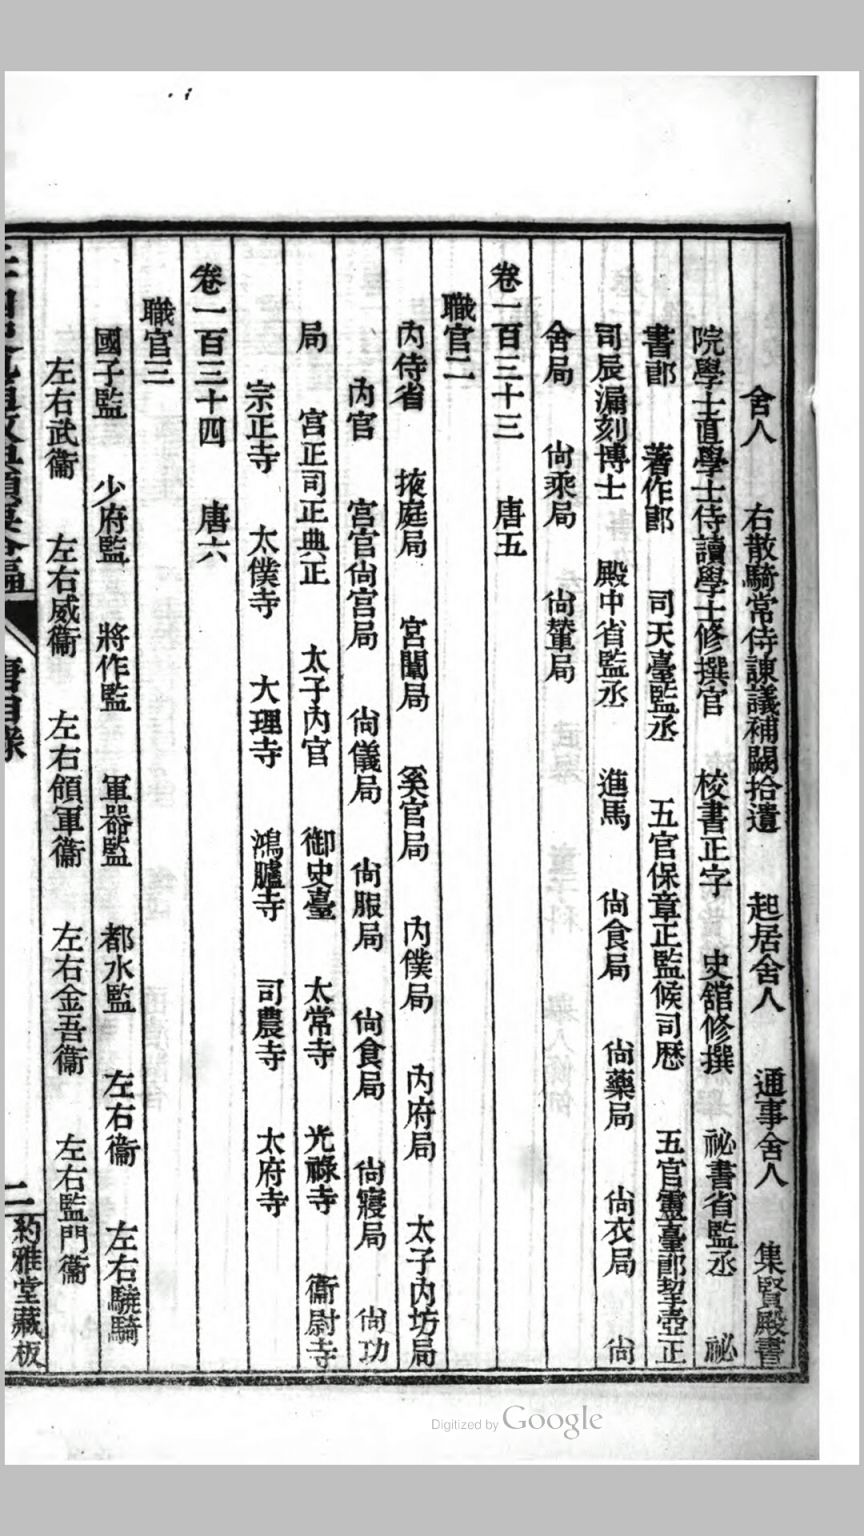 舍人　右散騎常侍諌議補闕拾遺　起居舍人　通事舍人　集賢殿書
院學士直學士侍讀學士修撰官　校書正字　史舘修撰　祕書省監丞　祕
書郎　著作郎　司天臺監丞　五官保章正監候司曆　五官靈臺郎挈壺正
司辰漏刻博士　殿中省監丞　進馬　尙食局　尙藥局　尙衣局　尙
舍局　尙乘局　尙輦局
卷一百三十三　唐五
職官二
內侍省　掖庭局　宮闈局　奚官局　內僕局　內府局　太子內坊局
內官　宮官尙宮局　尙儀局　尙服局　尙食局　尙寢局　尙功
局　宮正司正典正　太子內官　御史臺　太常寺　光祿寺　衞尉寺
宗正寺　太僕寺　大理寺　鴻臚寺　司農寺　太府寺
卷一百三十四　唐六
職官三
國子監　少府監　將作監　軍器監　都水監　左右衞　左右驍騎
左右武衞　左右威衞　左右領軍衞　左右金吾衞　左右監門衞
唐目錄
二
約雅堂藏板
Digitized by Google